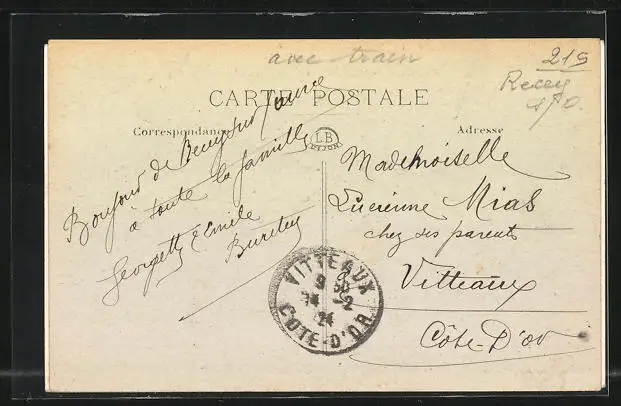 avec train
219
Recey
s/O.
CARTE POSTALE
Correspondance
LB
DIJON
Adresse
Bonjour de Recey sur Ource
à toute la famille
Georgette Emile
Mademoiselle
Lucienne Mias
chez ses parents
Vitteaux
Côte-D'or
VITTEAUX
24
COTE-D'OR